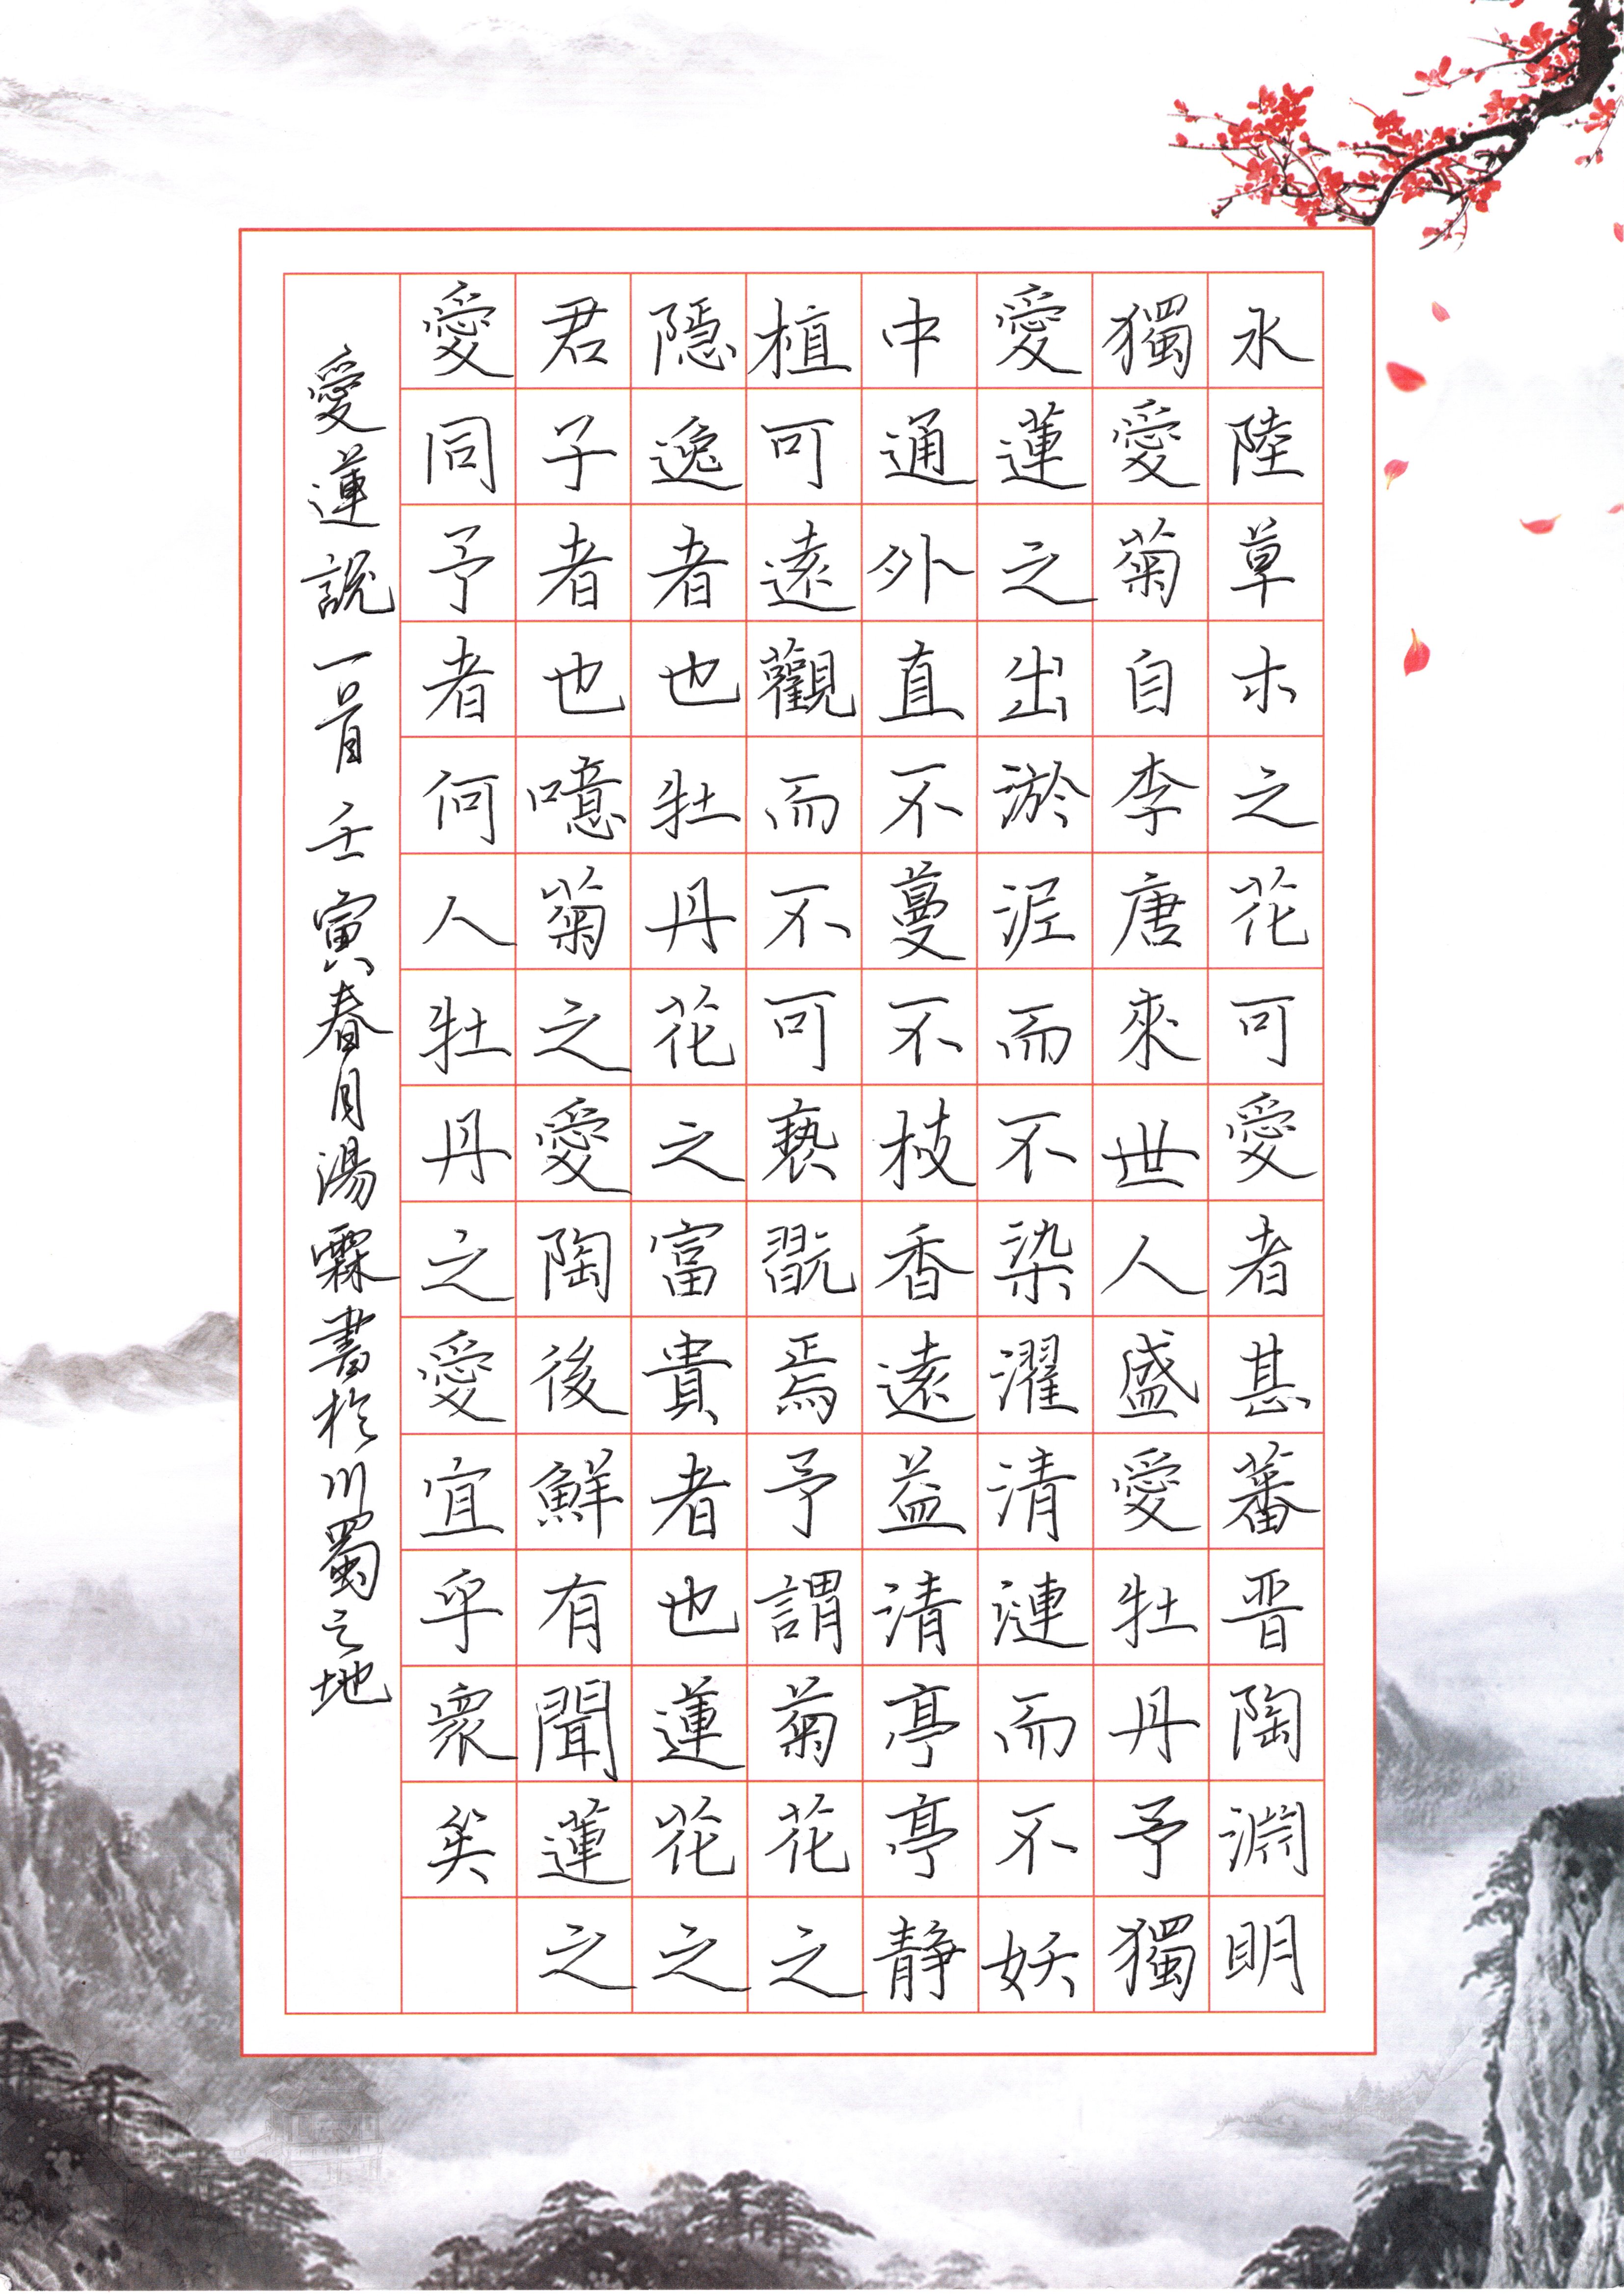 水陸草木之花可愛者甚蕃晋陶淵明
獨愛菊自李唐來世人盛愛牡丹予獨
愛蓮之出淤泥而不染濯清漣而不妖
中通外直不蔓不枝香遠益清亭亭静
植可遠觀而不可褻翫焉予謂菊花之
隱逸者也牡丹花之富貴者也蓮花之
君子者也噫菊之愛陶後鮮有聞蓮之
愛同予者何人牡丹之愛宜乎衆矣
愛蓮説一首壬寅春月湯霖書於川蜀之地